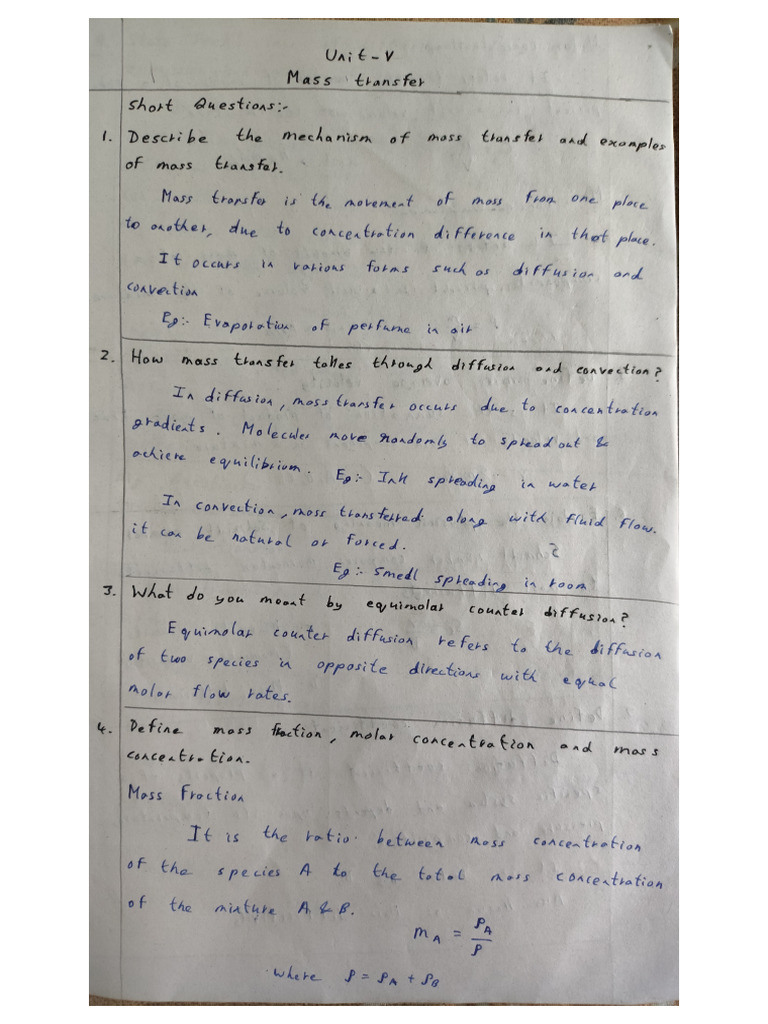 Unit-V
Mass transfer
Short Questions:-
1. Describe the mechanism of mass transfer and examples
of mass transfer.
Mass transfer is the movement of mass from one place
to another, due to concentration difference in that place.
It occurs in various forms such as diffusion and
convection
Eg:- Evaporation of perfume in air
2. How mass transfer takes through diffusion and convection?
In diffusion, mass transfer occurs due to concentration
gradients. Molecules move randomly to spread out &
achieve equilibrium. Eg:- Ink spreading in water
In convection, mass transferred along with fluid flow.
it can be natural or forced.
Eg:- smell spreading in room
3. What do you meant by equimolar counter diffusion?
Equimolar counter diffusion refers to the diffusion
of two species in opposite directions with equal
molar flow rates.
4. Define mass fraction, molar concentration and mass
concentration.
Mass Fraction
It is the ratio between mass concentration
of the species A to the total mass concentration
of the mixture A & B.
m_A = ρ_A / ρ
where ρ = ρ_A + ρ_B